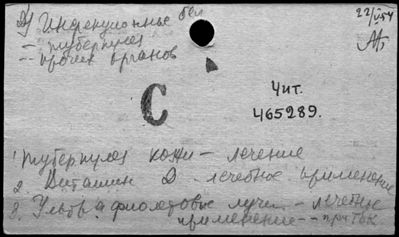 2) Инфекционные бол
22/VI 54
— туберкулез
-- прочих органов
С
Чит.
465289.
1. Туберкулез кожи — лечение
2. Витамин D - лечебное применение
3. Ультрафиолетовые лучи — лечебное
применение -- при твк